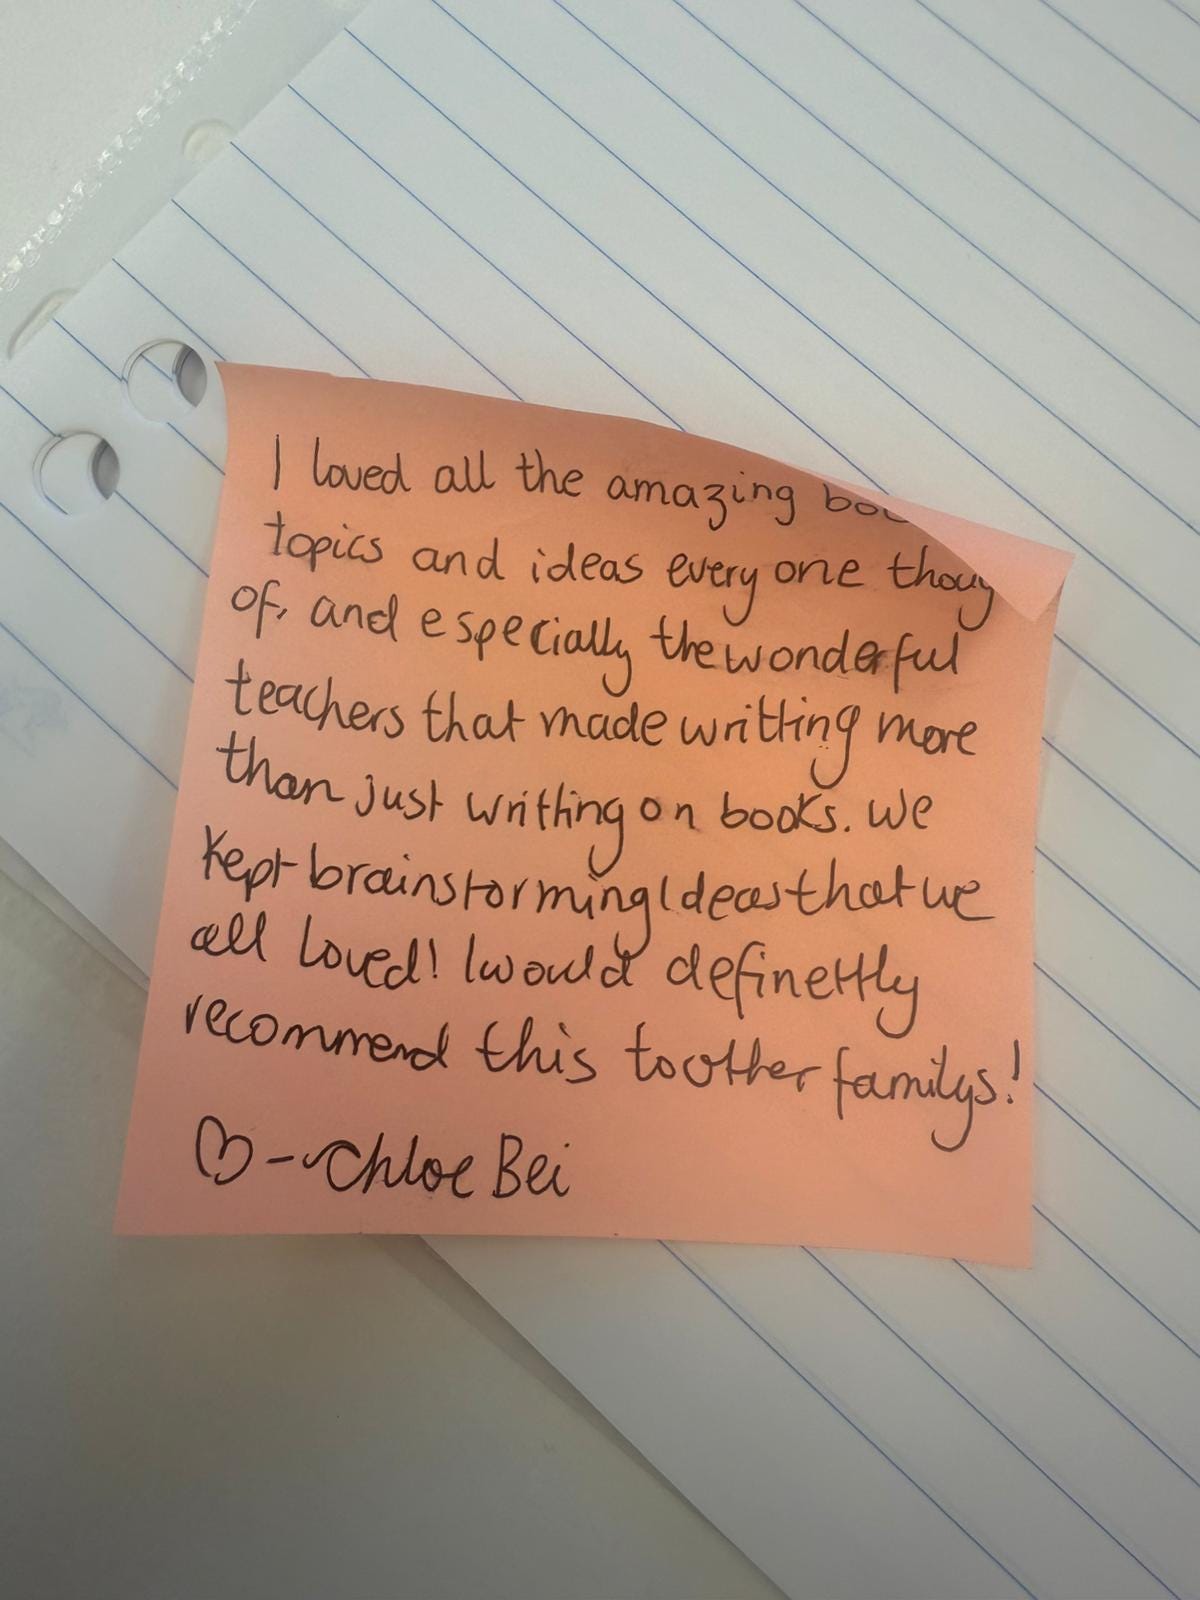 I loved all the amazing
topics and ideas every one
of, and especially the wonderful
teachers that made writting more
than just writting on books. We
kept brainstorming Ideas that we
all loved! I would definettly
recommend this to other familys!
♡ -- Chloe Bei